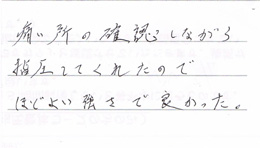 痛い所の確認しながら
指圧してくれたので
ほどよい強さで良かった。